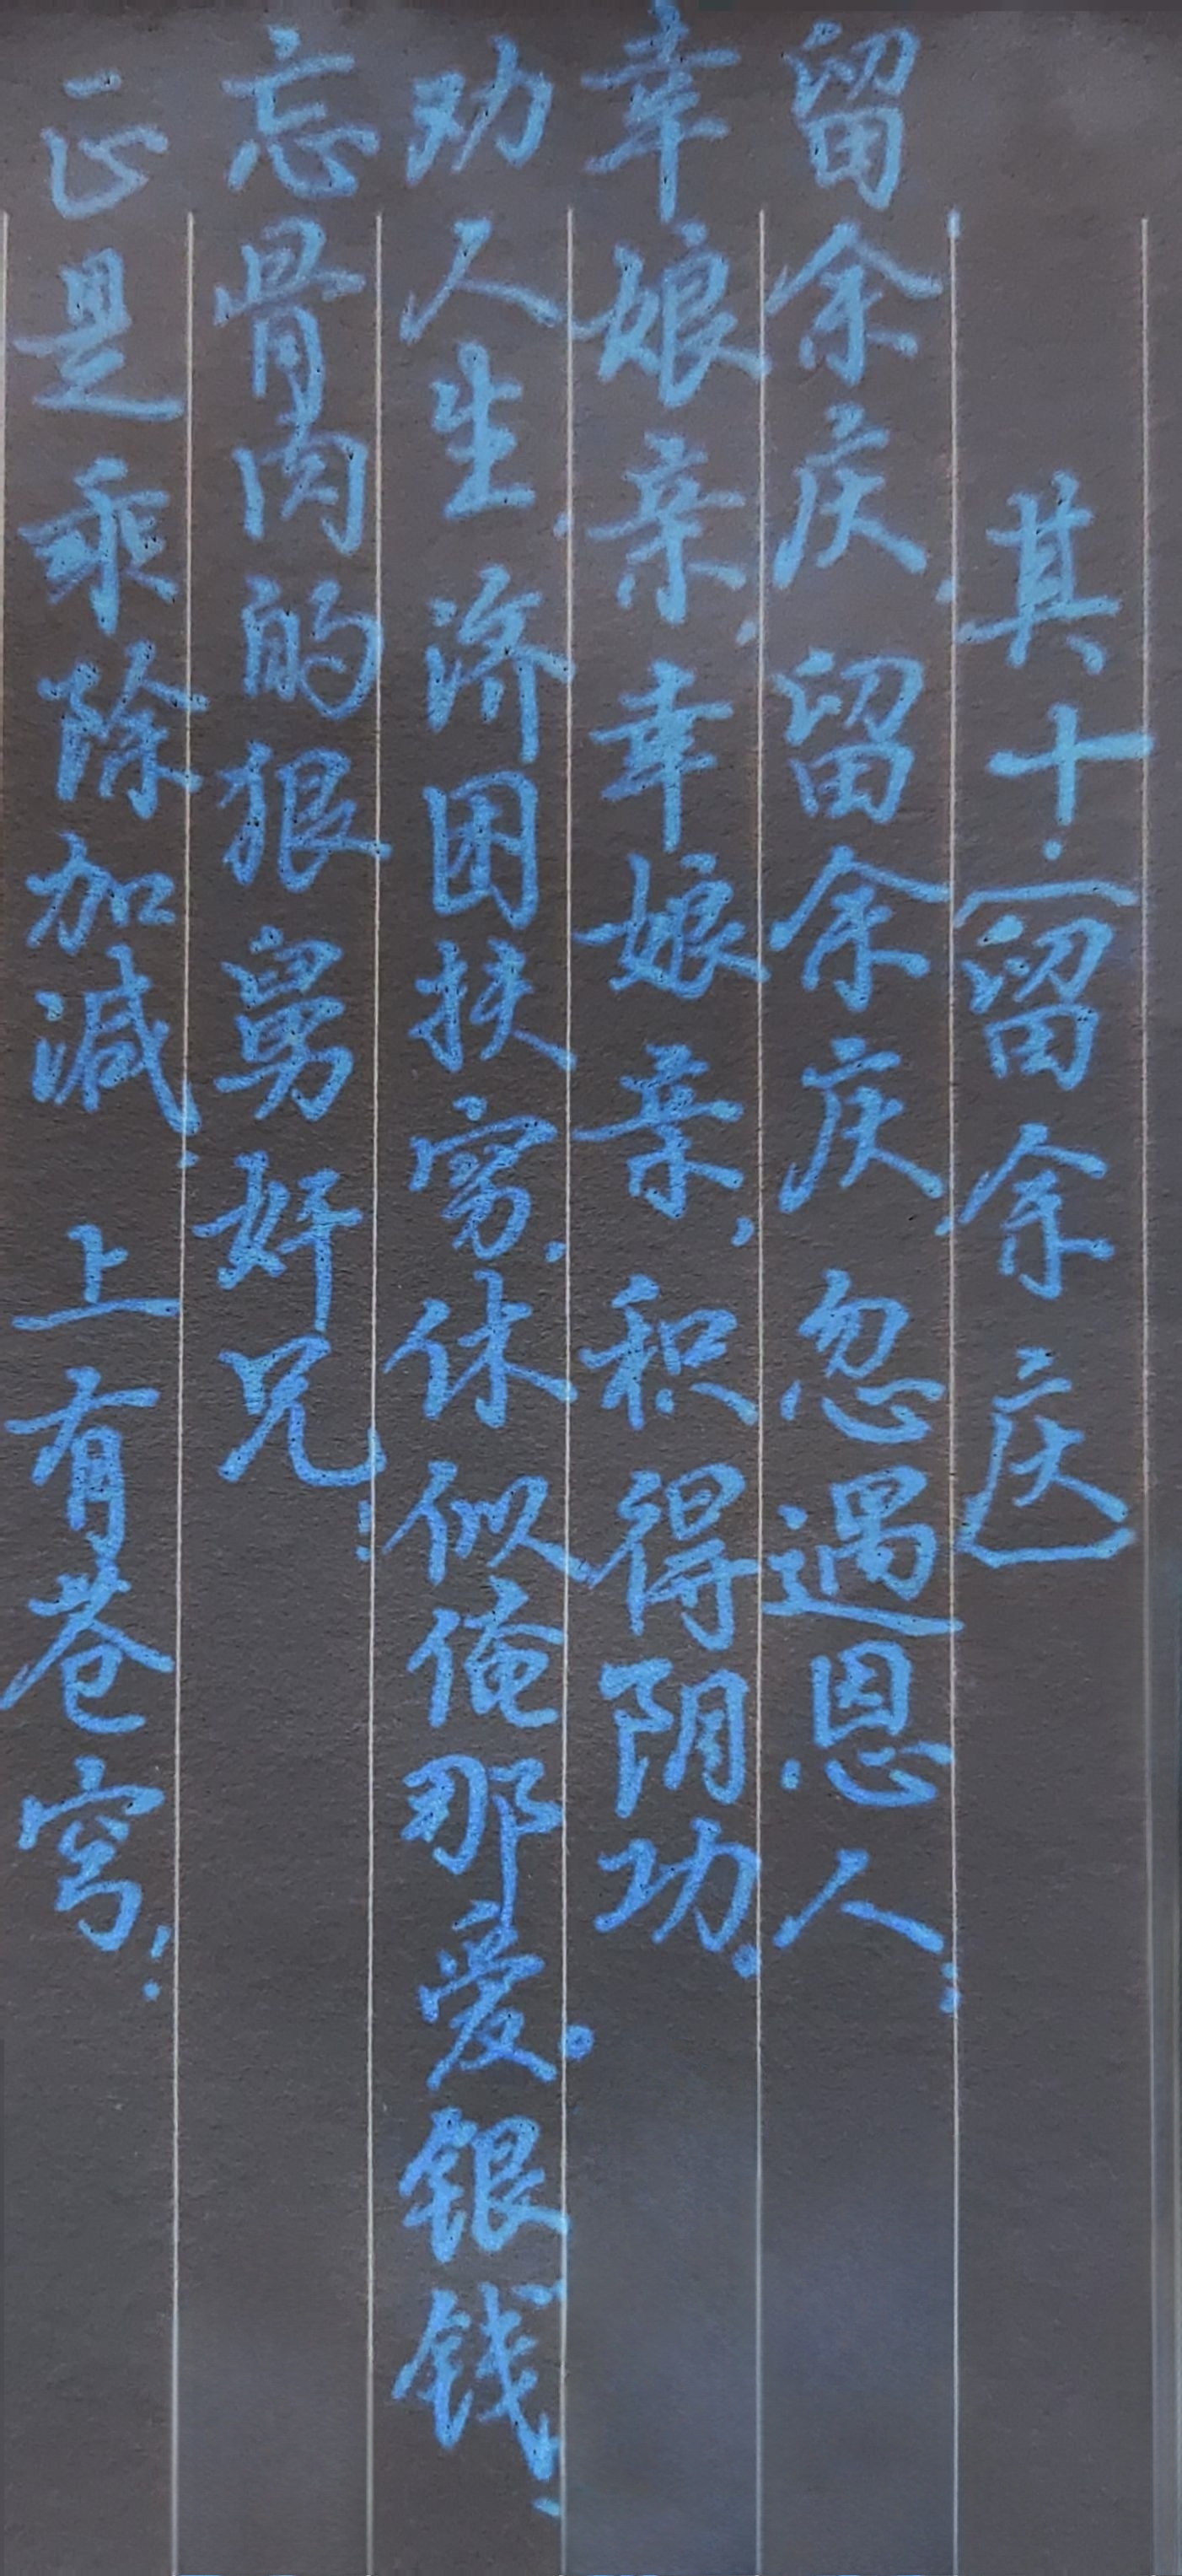 其十·〔留余庆〕
留余庆,留余庆,忽遇恩人;
幸娘亲,幸娘亲,积得阴功。
劝人生,济困扶穷,休似俺那爱银钱、
忘骨肉的狠舅奸兄!
正是乘除加减,上有苍穹!